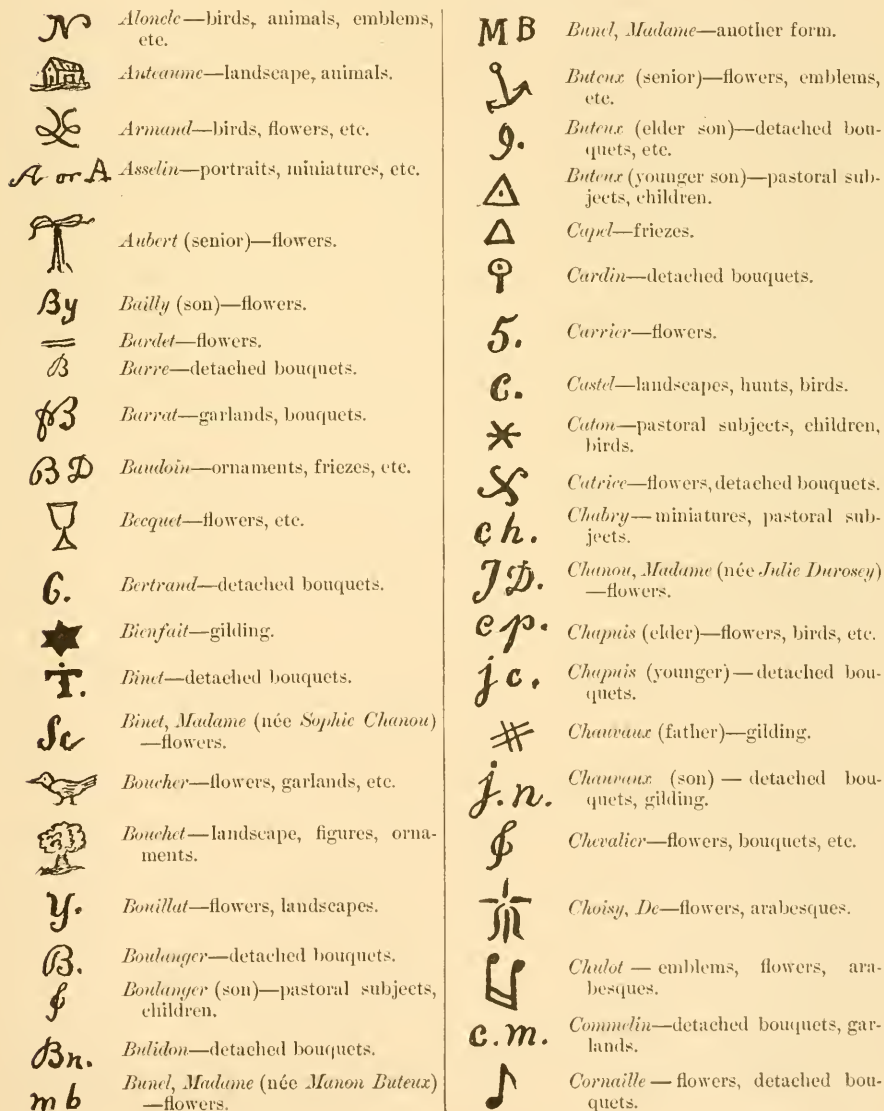 N Aloncle—birds, animals, emblems,
etc.
Anteaume—landscape, animals.
Armand—birds, flowers, etc.
A or A Asselin—portraits, miniatures, etc.
Aubert (senior)—flowers.
By Bailly (son)—flowers.
Bardet—flowers.
B Barre—detached bouquets.
B Barrat—garlands, bouquets.
B D Baudoin—ornaments, friezes, etc.
Becquet—flowers, etc.
6. Bertrand—detached bouquets.
Bienfait—gilding.
T. Binet—detached bouquets.
Sc Binet, Madame (née Sophie Chanou)
—flowers.
Boucher—flowers, garlands, etc.
Bouchet—landscape, figures, orna-
ments.
Y. Bouillat—flowers, landscapes.
B. Boulanger—detached bouquets.
Boulanger (son)—pastoral subjects,
children.
Bn. Bulidon—detached bouquets.
m b Bunel, Madame (née Manon Buteux)
—flowers.
M B Bunel, Madame—another form.
Buteux (senior)—flowers, emblems,
etc.
9. Buteux (elder son)—detached bou-
quets, etc.
Buteux (younger son)—pastoral sub-
jects, children.
Capel—friezes.
Cardin—detached bouquets.
5. Carrier—flowers.
C. Castel—landscapes, hunts, birds.
Caton—pastoral subjects, children,
birds.
Catrice—flowers, detached bouquets.
ch. Chabry—miniatures, pastoral sub-
jects.
J D. Chanou, Madame (née Julie Durosey)
—flowers.
c p. Chapuis (elder)—flowers, birds, etc.
j c. Chapuis (younger)—detached bou-
quets.
Chauvaux (father)—gilding.
j. n. Chauvaux (son) — detached bou-
quets, gilding.
Chevalier—flowers, bouquets, etc.
Choisy, De—flowers, arabesques.
Chulot — emblems, flowers, ara-
besques.
c. m. Commelin—detached bouquets, gar-
lands.
Cornaille — flowers, detached bou-
quets.